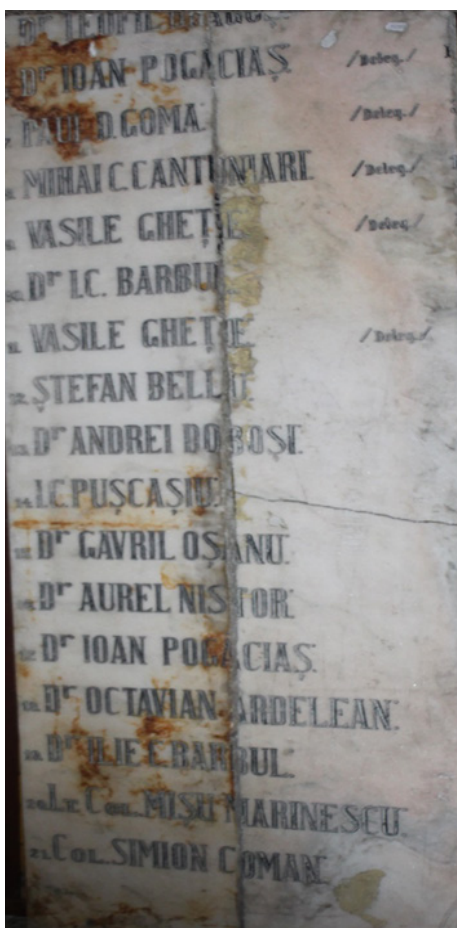 Dr TEOFIL
Dr IOAN POGĂCIAȘ /Deleg./
PAUL D. GOMA. /Deleg./
MIHAI C. CANTUNIARI. /Deleg./
VASILE GHEȚIE /Deleg./
Dr I.C. BARBUL.
VASILE GHEȚIE. /Deleg./
12. ȘTEFAN BELLU
Dr ANDREI DOBOȘI.
14. I.C. PUȘCAȘIU.
Dr GAVRIL OȘANU.
Dr AUREL NISTOR.
Dr IOAN POGĂCIAȘ.
Dr OCTAVIAN ARDELEAN.
Dr ILIE E. BARBUL.
20. Lt. Col. MIȘU MARINESCU.
21. Col. SIMION COMAN.